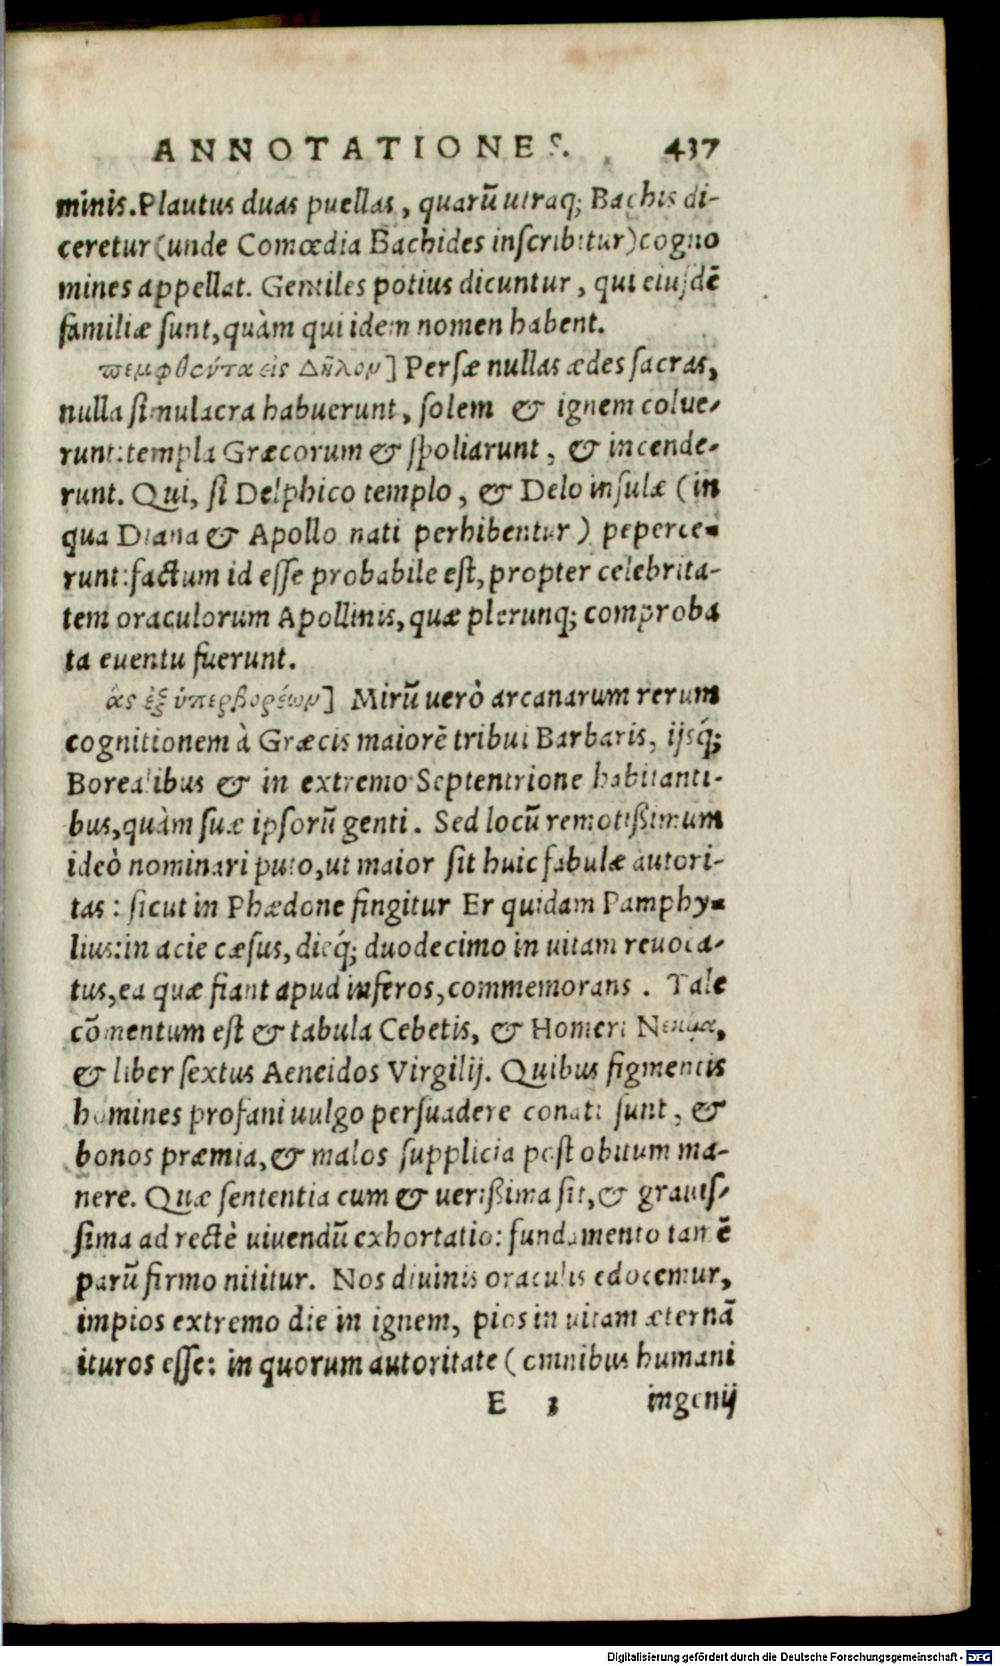 ANNOTATIONES. 437
minis. Plautus duas puellas, quarũ utraq; Bachis di-
ceretur (unde Comœdia Bachides inscribitur) cogno
mines appellat. Gentiles potius dicuntur, qui eiusdẽ
familiæ sunt, quàm qui idem nomen habent.
πεμφθέντα εἰς Δῆλον] Persæ nullas ædes sacras,
nulla simulacra habuerunt, solem & ignem colue-
runt: templa Græcorum & spoliarunt, & incende-
runt. Qui, si Delphico templo, & Delo insulæ (in
qua Diana & Apollo nati perhibentur) peperce-
runt: factum id esse probabile est, propter celebrita-
tem oraculorum Apollinis, quæ plerunq; comproba
ta euentu fuerunt.
ἃς ἐξ ὑπερβορέων] Mirũ uerò arcanarum rerum
cognitionem à Græcis maiorẽ tribui Barbaris, ijsq́;
Borealibus & in extremo Septentrione habitanti-
bus, quàm suæ ipsorũ genti. Sed locũ remotißimum
ideò nominari puto, ut maior sit huic fabulæ autori-
tas: sicut in Phædone fingitur Er quidam Pamphy-
lius: in acie cæsus, dieq́; duodecimo in uitam reuoca-
tus, ea quæ fiant apud inferos, commemorans. Tale
cõmentum est & tabula Cebetis, & Homeri Νεκυια,
& liber sextus Aeneidos Virgilij. Quibus figmentis
homines profani uulgo persuadere conati sunt, &
bonos præmia, & malos supplicia post obitum ma-
nere. Quæ sententia cum & uerißima sit, & grauis-
sima ad rectè uiuendũ exhortatio: fundamento tamẽ
parũ firmo nititur. Nos diuinis oraculis edocemur,
impios extremo die in ignem, pios in uitam æternã
ituros esse: in quorum autoritate (omnibus humani
E 3 ingenij
Digitalisierung gefördert durch die Deutsche Forschungsgemeinschaft - DFG